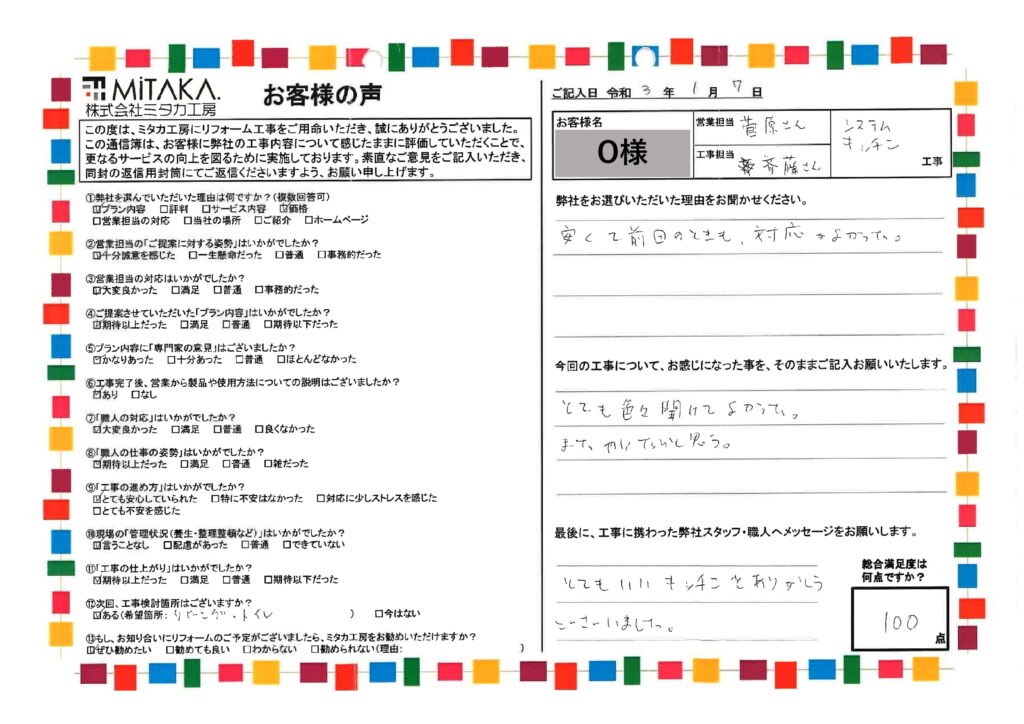 MiTAKA.
株式会社ミタカ工房
お客様の声
この度は、ミタカ工房にリフォーム工事をご用命いただき、誠にありがとうございました。
この通信簿は、お客様に弊社の工事内容について感じたままに評価していただくことで、
更なるサービスの向上を図るために実施しております。素直なご意見をご記入いただき、
同封の返信用封筒にてご返信くださいますよう、お願い申し上げます。
①弊社を選んでいただいた理由は何ですか?(複数回答可)
☑プラン内容 □評判 □サービス内容 ☑価格
□営業担当の対応 □当社の場所 □ご紹介 □ホームページ
②営業担当の「ご提案に対する姿勢」はいかがでしたか?
☑十分誠意を感じた □一生懸命だった □普通 □事務的だった
③営業担当の対応はいかがでしたか?
☑大変良かった □満足 □普通 □事務的だった
④ご提案させていただいた「プラン内容」はいかがでしたか?
☑期待以上だった □満足 □普通 □期待以下だった
⑤プラン内容に「専門家の意見」はございましたか?
☑かなりあった □十分あった □普通 □ほとんどなかった
⑥工事完了後、営業から製品や使用方法についての説明はございましたか?
☑あり □なし
⑦「職人の対応」はいかがでしたか?
☑大変良かった □満足 □普通 □良くなかった
⑧「職人の仕事の姿勢」はいかがでしたか?
☑期待以上だった □満足 □普通 □雑だった
⑨「工事の進め方」はいかがでしたか?
☑とても安心していられた □特に不安はなかった □対応に少しストレスを感じた
□とても不安を感じた
⑩現場の「管理状況(養生・整理整頓など)」はいかがでしたか?
☑言うことなし □配慮があった □普通 □できていない
⑪「工事の仕上がり」はいかがでしたか?
☑期待以上だった □満足 □普通 □期待以下だった
⑫次回、工事検討箇所はございますか?
☑ある(希望箇所: リビング・トイレ ) □今はない
⑬もし、お知り合いにリフォームのご予定がございましたら、ミタカ工房をお勧めいただけますか?
☑ぜひ勧めたい □勧めても良い □わからない □勧められない(理由: )
ご記入日 令和 3 年 1 月 7 日
お客様名
O様
営業担当 菅原さん
工事担当 斉藤さん
システム
キッチン
工事
弊社をお選びいただいた理由をお聞かせください。
安くて前回のときも、対応がよかった。
今回の工事について、お感じになった事を、そのままご記入お願いいたします。
とても色々聞けてよかった。
また、
思う。
最後に、工事に携わった弊社スタッフ・職人へメッセージをお願いします。
とてもいいキッチンをありがとう
ございました。
総合満足度は
何点ですか?
100
点